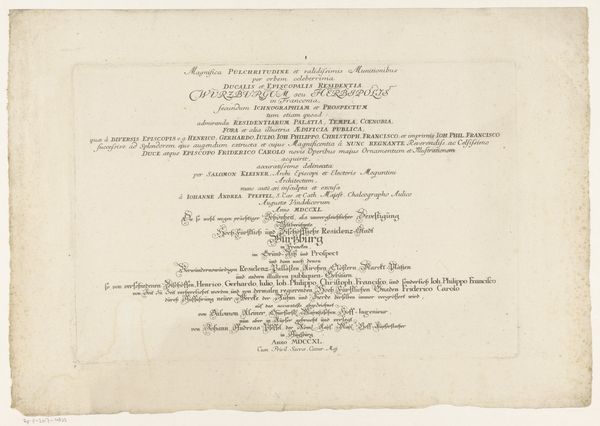 Magnifica PULCHRITUDINE et validissimis Munitionibus
per orbem celeberrima
DUCALIS et EPISCOPALIS RESIDENTIA
WÜRZBURGUM seu HERBIPOLIS
in Franconia,
secundum ICHNOGRAPHIAM et PROSPECTUM
tum etiam quoad
admiranda RESIDENTIARUM PALATIA, TEMPLA, COENOBIA,
FORA et alia illustria ÆDIFICIA PUBLICA,
quæ à DIVERSIS EPISCOPIS e.g. HENRICO, GERHARDO, IULIO, IOH. PHILIPPO, CHRISTOPH. FRANCISCO, et imprimis IOH. PHIL. FRANCISCO
successive ad Splendorem ejus augendum extructa et cujus Magnificentia à NUNC REGNANTE Reverendiss. ac Celsissimo
DUCE atque EPISCOPO FRIDERICO CAROLO novis Operibus majus Ornamentum et Illustrationem
acquirit,
accuratissime delineata
per SALOMON KLEINER, Archi Episcopi et Electoris Moguntini
Architectum,
nunc autem æri insculpta et excusa
à IOHANNE ANDREA PFEFFEL, S. Cæs. et Cath. Majest. Chalcographo Aulico
Augustæ Vindelicorum
Anno MDCCXL.
Die so wohl wegen prächtiger Schönheit, als unvergleichlicher Bevestigung
Weltberühmte
Hoch-Fürstlich und Bischöffliche Residenz-Stadt
Würzburg
in Francken
im Grund-Riß und Prospect
und dann nach denen
Verwunderenswürdigen Residenz-Pallästen, Kirchen, Clöstern, Marckt-Plätzen
und andern illustren publiquen Gebäuen
so von verschiedenen Bischöffen, Henrico, Gerhardo, Iulio, Ioh. Philippo, Christoph. Francisco, und sonderlich Ioh. Philippo Francisco
von Zeit zu Zeit
und von dermalen regierenden Hoch-Fürstlichen Gnaden Friderico Carolo
durch Aufführung neuer Wercke der Ruhm und Zierde derselben immer vergrößert wird
auf das accurateste abgezeichnet
von Salomon Kleiner, Churfürstl. Mayntzischen Hoff-Ingenieur,
nun aber in Kupfer gebracht und verlegt
von Johann Andreas Pfeffel, der Röm. Kays. Maj. Hoff-Kupferstecher
in Augspurg
Anno MDCCXL.
Cum Priv. Sacræ Cæsar. Maj.